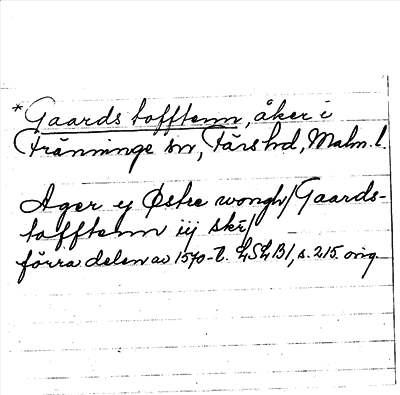 *Gaards tofftenn, åker i
Fränninge sn, Färs hd, Malm. l.
Ager ij Østre wongh/Gaards-
tofftenn iij skr/
förra delen av 1570-t. LSLB1, s. 215. orig.